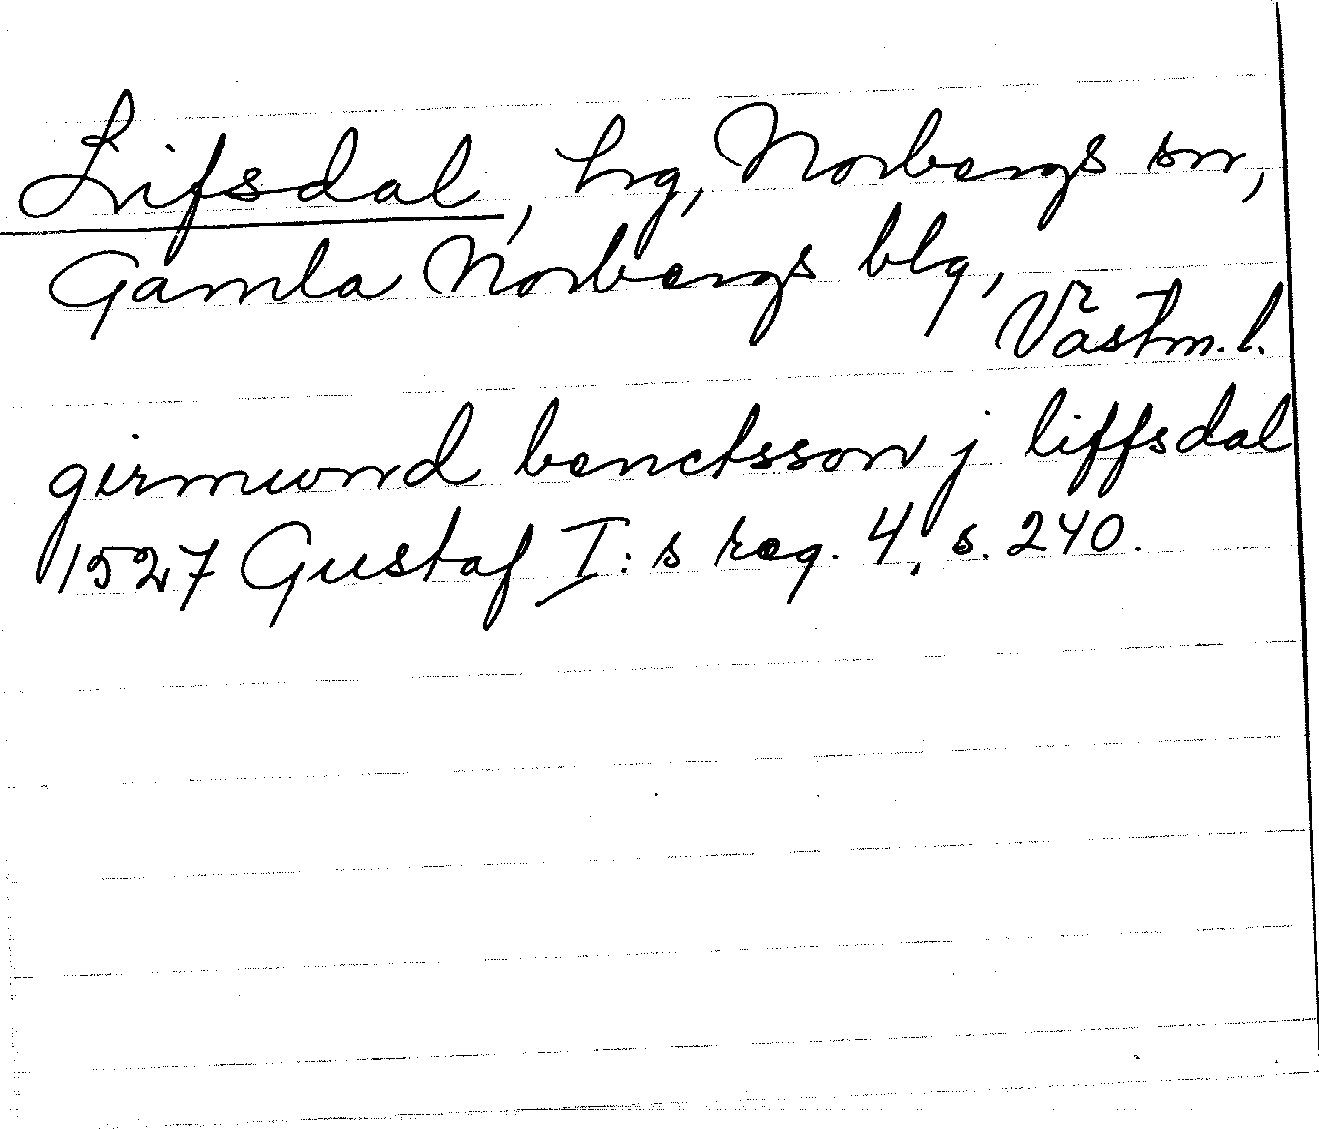 Lifsdal, hg, Norbergs sn,
Gamla Norbergs blg,
Västm. l.
girmund benctsson j liffsdal
1527 Gustaf I:s reg. 4, s. 240.